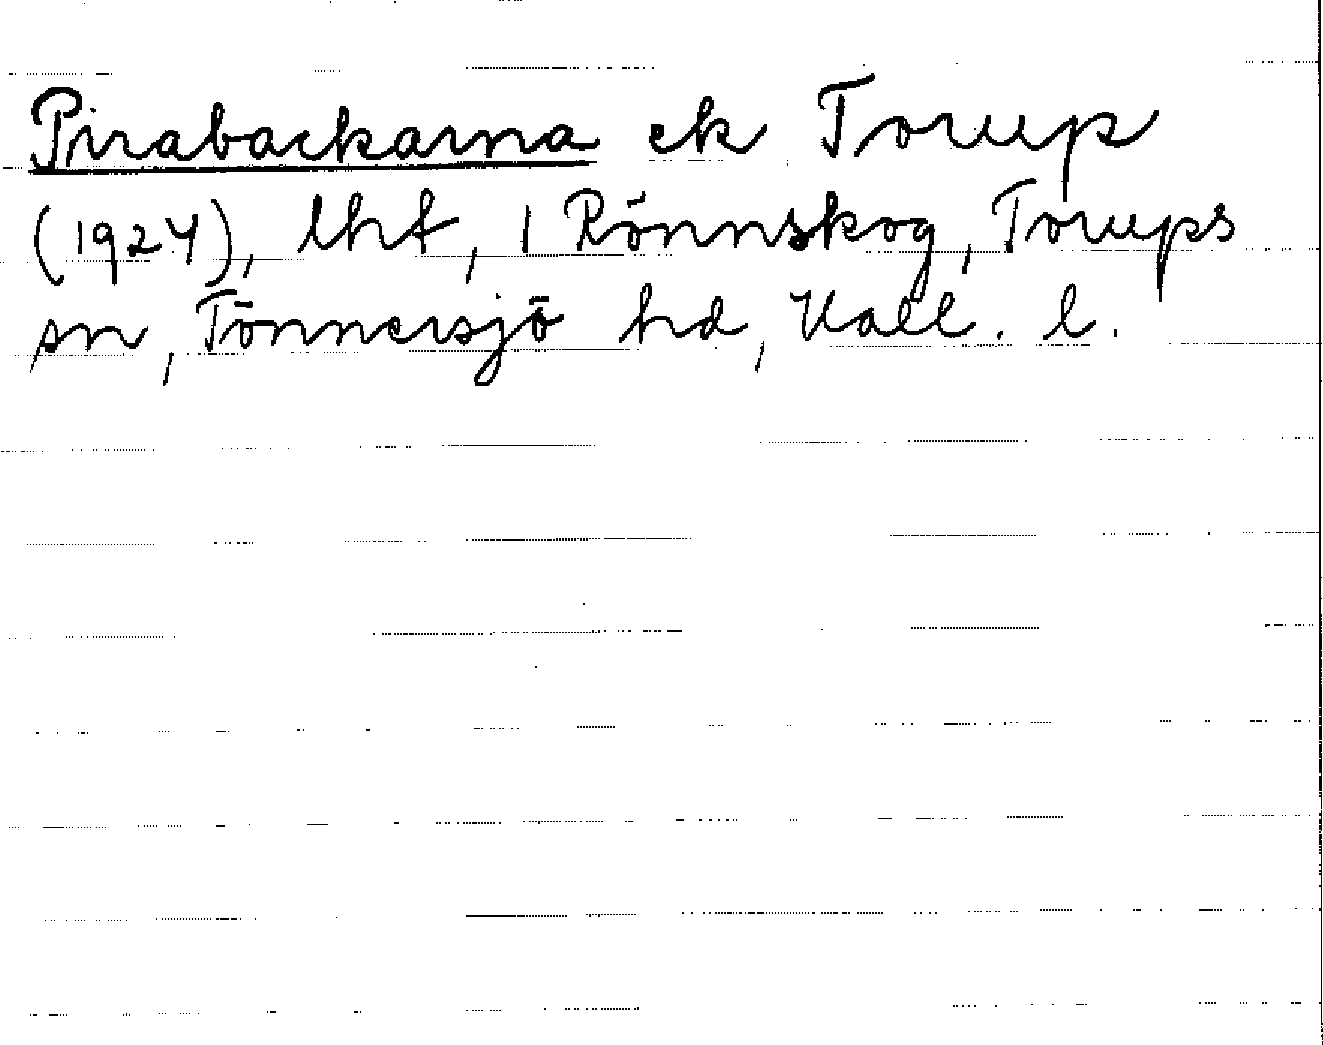 Pirabackarna ek Torup
(1924), lht, 1 Rönnskog, Torups
sn, Tönnersjö hd, Hall. l.